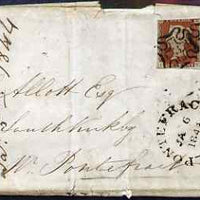 1844
Allott Esq
South Kirkby
Nr. Pontefract
PONTEFRACT
A
6
184